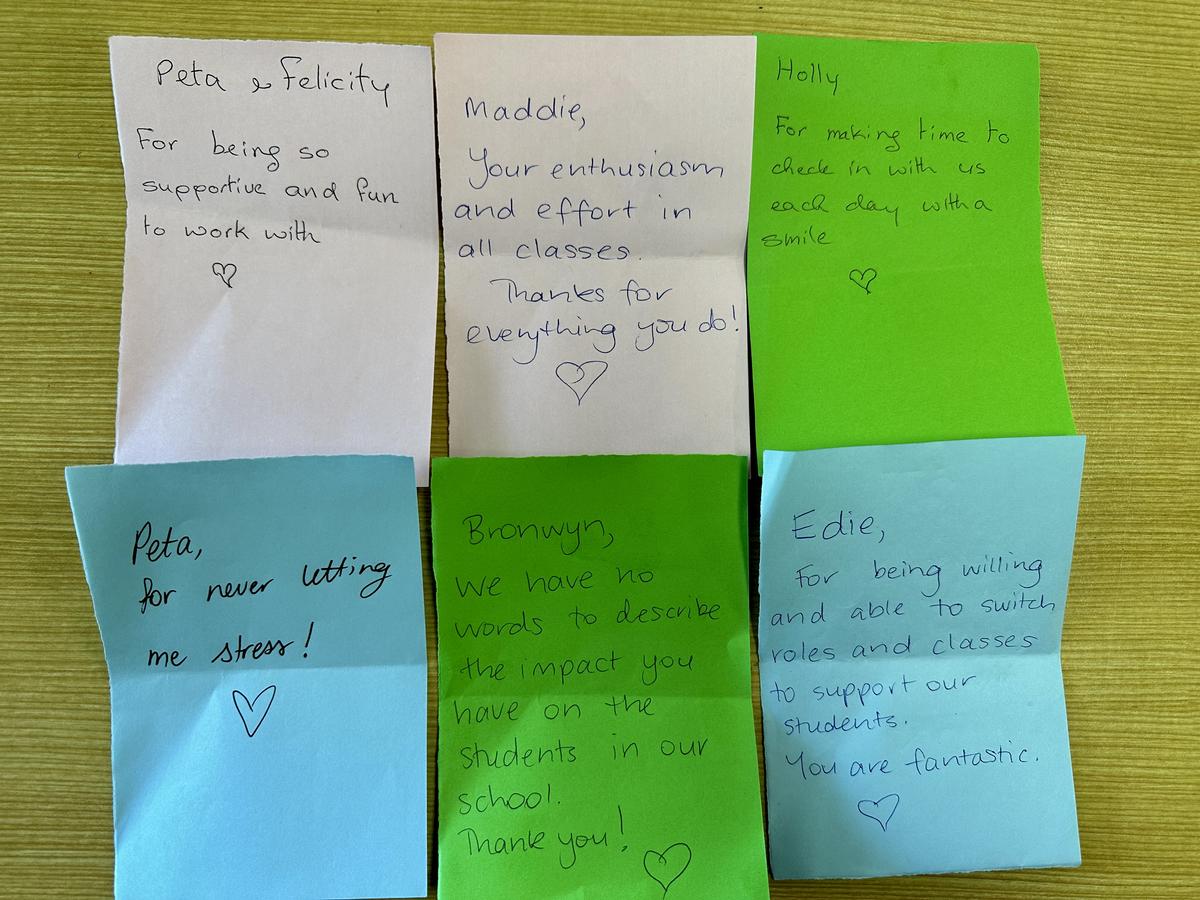 Peta & Felicity
For being so
supportive and fun
to work with
Maddie,
Your enthusiasm
and effort in
all classes.
Thanks for
everything you do!
Holly
For making time to
check in with us
each day with a
smile
Peta,
for never letting
me stress!
Bronwyn,
We have no
words to describe
the impact you
have on the
students in our
school.
Thank you!
Edie,
For being willing
and able to switch
roles and classes
to support our
students.
You are fantastic.